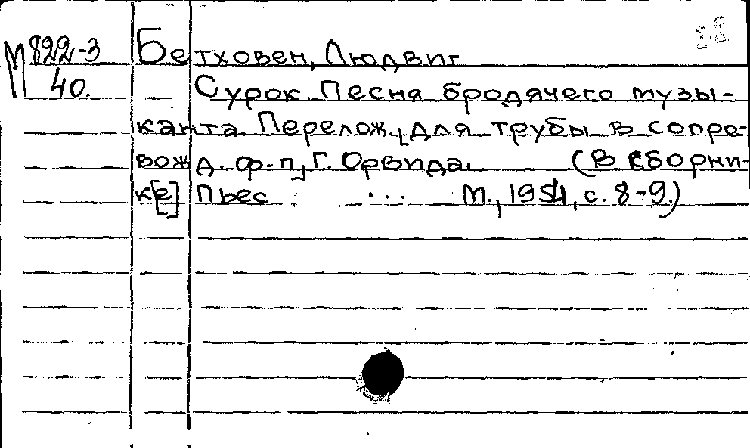 М 822-3 Бетховен, Людвиг
40. Сурок Песня бродячего музы-
канта. Перелож. для трубы в сопро-
вожд. ф-п, Г. Орвида. (В сборни-
к[е] Пьес ... М., 1954, с. 8-9.)